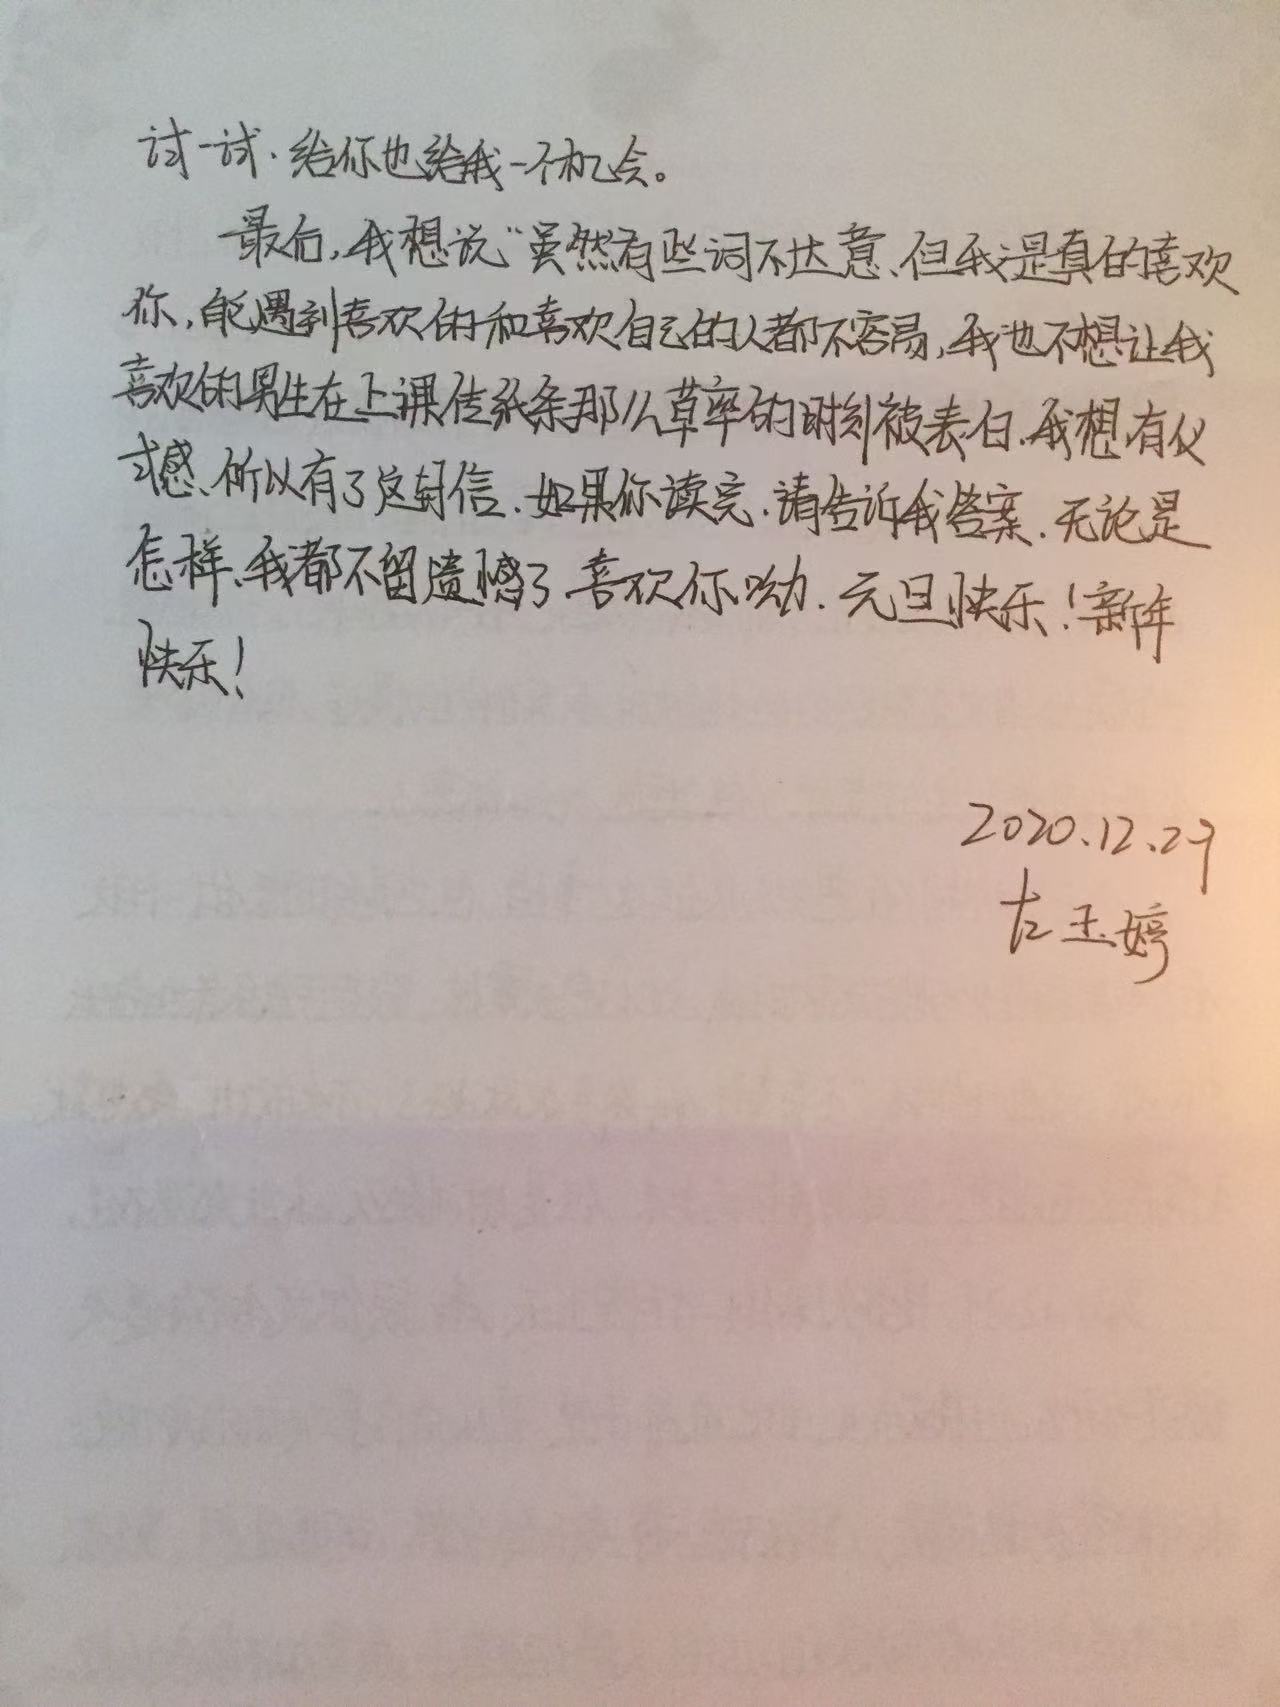 试一试.给你也给我一个机会。
最后,我想说“虽然有些词不达意、但我是真的喜欢
你,能遇到喜欢的和喜欢自己的人都不容易,我也不想让我
喜欢的男生在上课传纸条那么草率的时刻被表白.我想有仪
式感、所以有了这封信.如果你读完.请告诉我答案.无论是
怎样、我都不留遗憾了.喜欢你呦.元旦快乐!新年
快乐!
2020.12.29
左玉婷